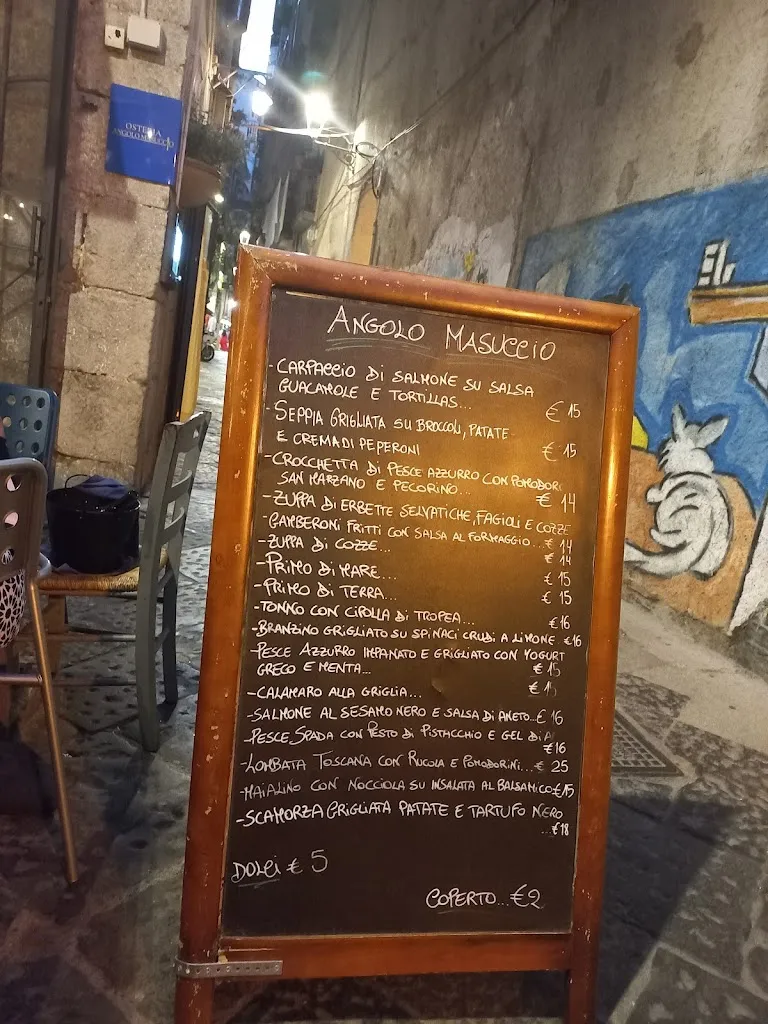 OSTERIA
ANGOLO MASUCCIO
ANGOLO MASUCCIO
-CARPACCIO DI SALMONE SU SALSA
GUACAMOLE E TORTILLAS... € 15
-SEPPIA GRIGLIATA SU BROCCOLI, PATATE
E CREMA DI PEPERONI € 15
-CROCCHETTA DI PESCE AZZURRO CON POMODORI
SAN MARZANO E PECORINO... € 14
-ZUPPA DI ERBETTE SELVATICHE, FAGIOLI E COZZE
-GAMBERONI FRITTI CON SALSA AL FORMAGGIO... € 14
-ZUPPA DI COZZE... € 14
-PRIMO DI MARE... € 15
-PRIMO DI TERRA... € 15
-TONNO CON CIPOLLA DI TROPEA... € 16
-BRANZINO GRIGLIATO SU SPINACI CRUDI A LIMONE €16
-PESCE AZZURRO IMPANATO E GRIGLIATO CON YOGURT
GRECO E MENTA... € 15
-CALAMARO ALLA GRIGLIA... €
-SALMONE AL SESAMO NERO E SALSA DI ANETO...€ 16
-PESCE SPADA CON PESTO DI PISTACCHIO E GEL DI
€16
-LOMBATA TOSCANA CON RUCOLA E POMODORINI...€ 25
-MAIALINO CON NOCCIOLA SU INSALATA AL BALSAMICO €15
-SCAMORZA GRIGLIATA PATATE E TARTUFO NERO
...€18
DOLCI € 5
COPERTO...€2